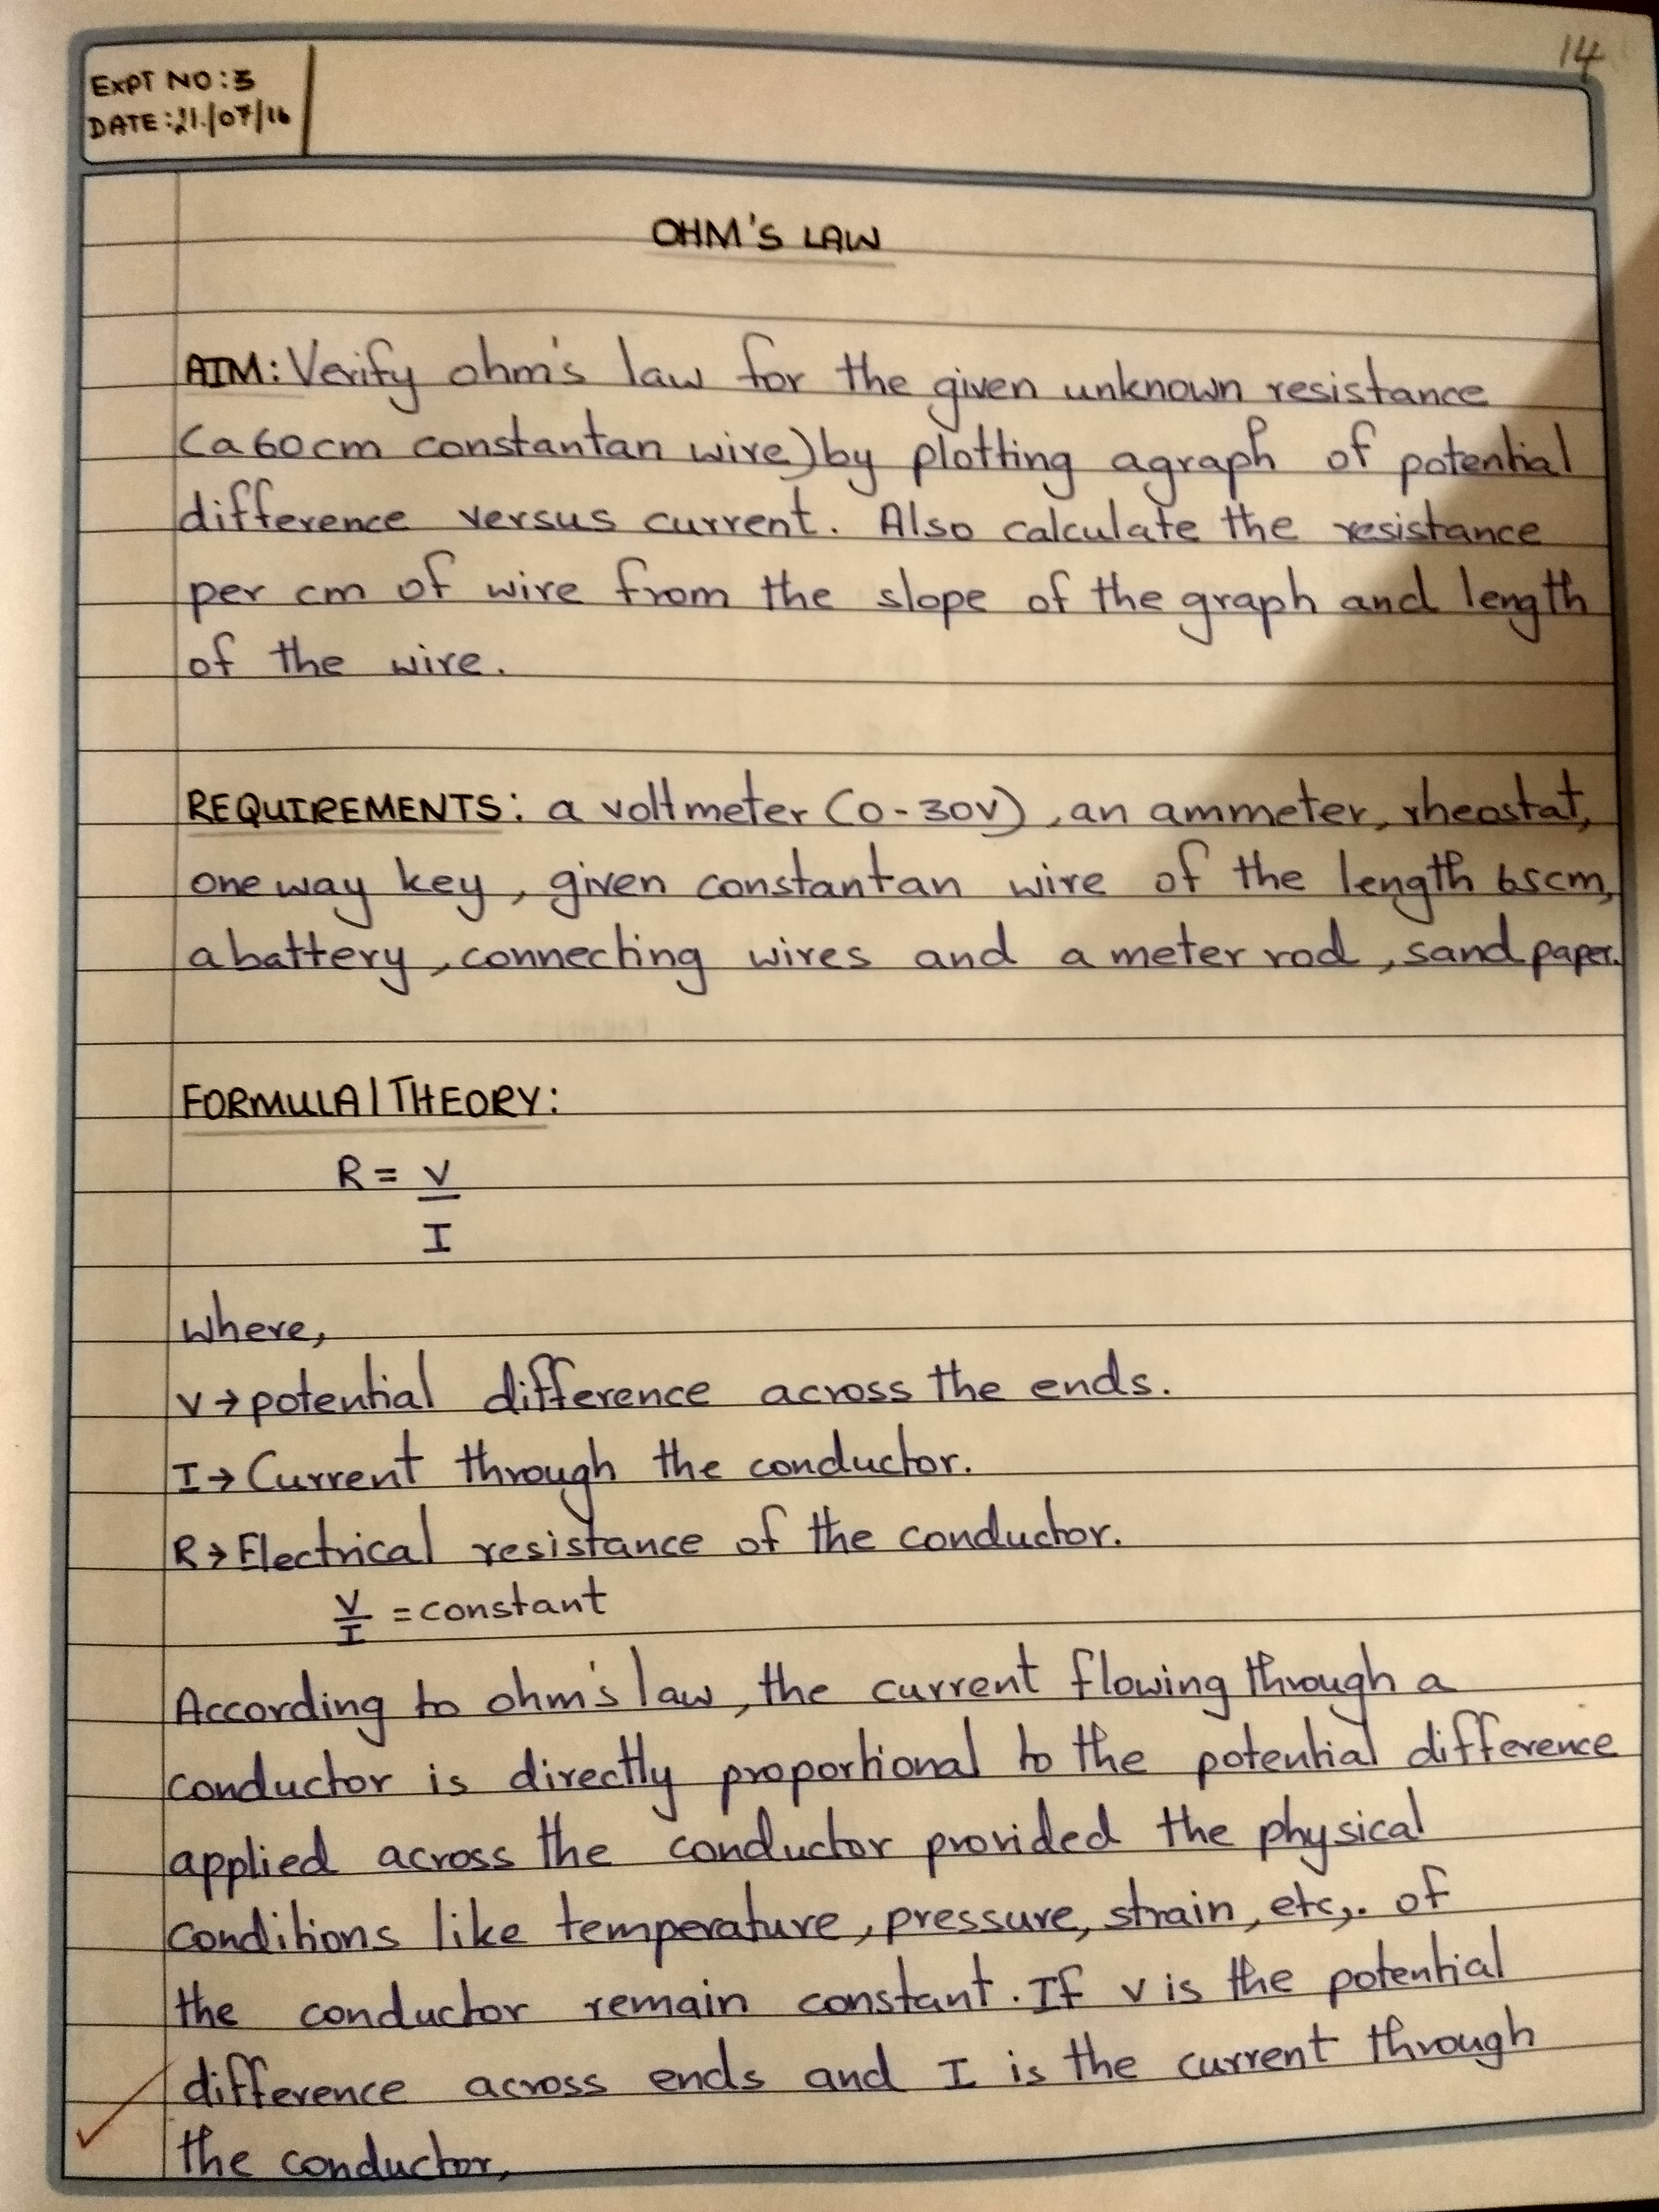 14
EXPT NO: 3
DATE: 21/07/16
OHM'S LAW
AIM: Verify ohm's law for the given unknown resistance
(a 60cm constantan wire) by plotting a graph of potential
difference versus current. Also calculate the resistance
per cm of wire from the slope of the graph and length
of the wire.
REQUIREMENTS: a voltmeter (0-30V), an ammeter, rheostat,
one way key, given constantan wire of the length 65cm,
a battery, connecting wires and a meter rod, sand paper.
FORMULA/THEORY:
R = V
I
where,
V→potential difference across the ends.
I→Current through the conductor.
R→Electrical resistance of the conductor.
V/I = constant
According to ohm's law, the current flowing through a
conductor is directly proportional to the potential difference
applied across the conductor provided the physical
conditions like temperature, pressure, strain, etc,. of
the conductor remain constant. If V is the potential
difference across ends and I is the current through
the conductor,